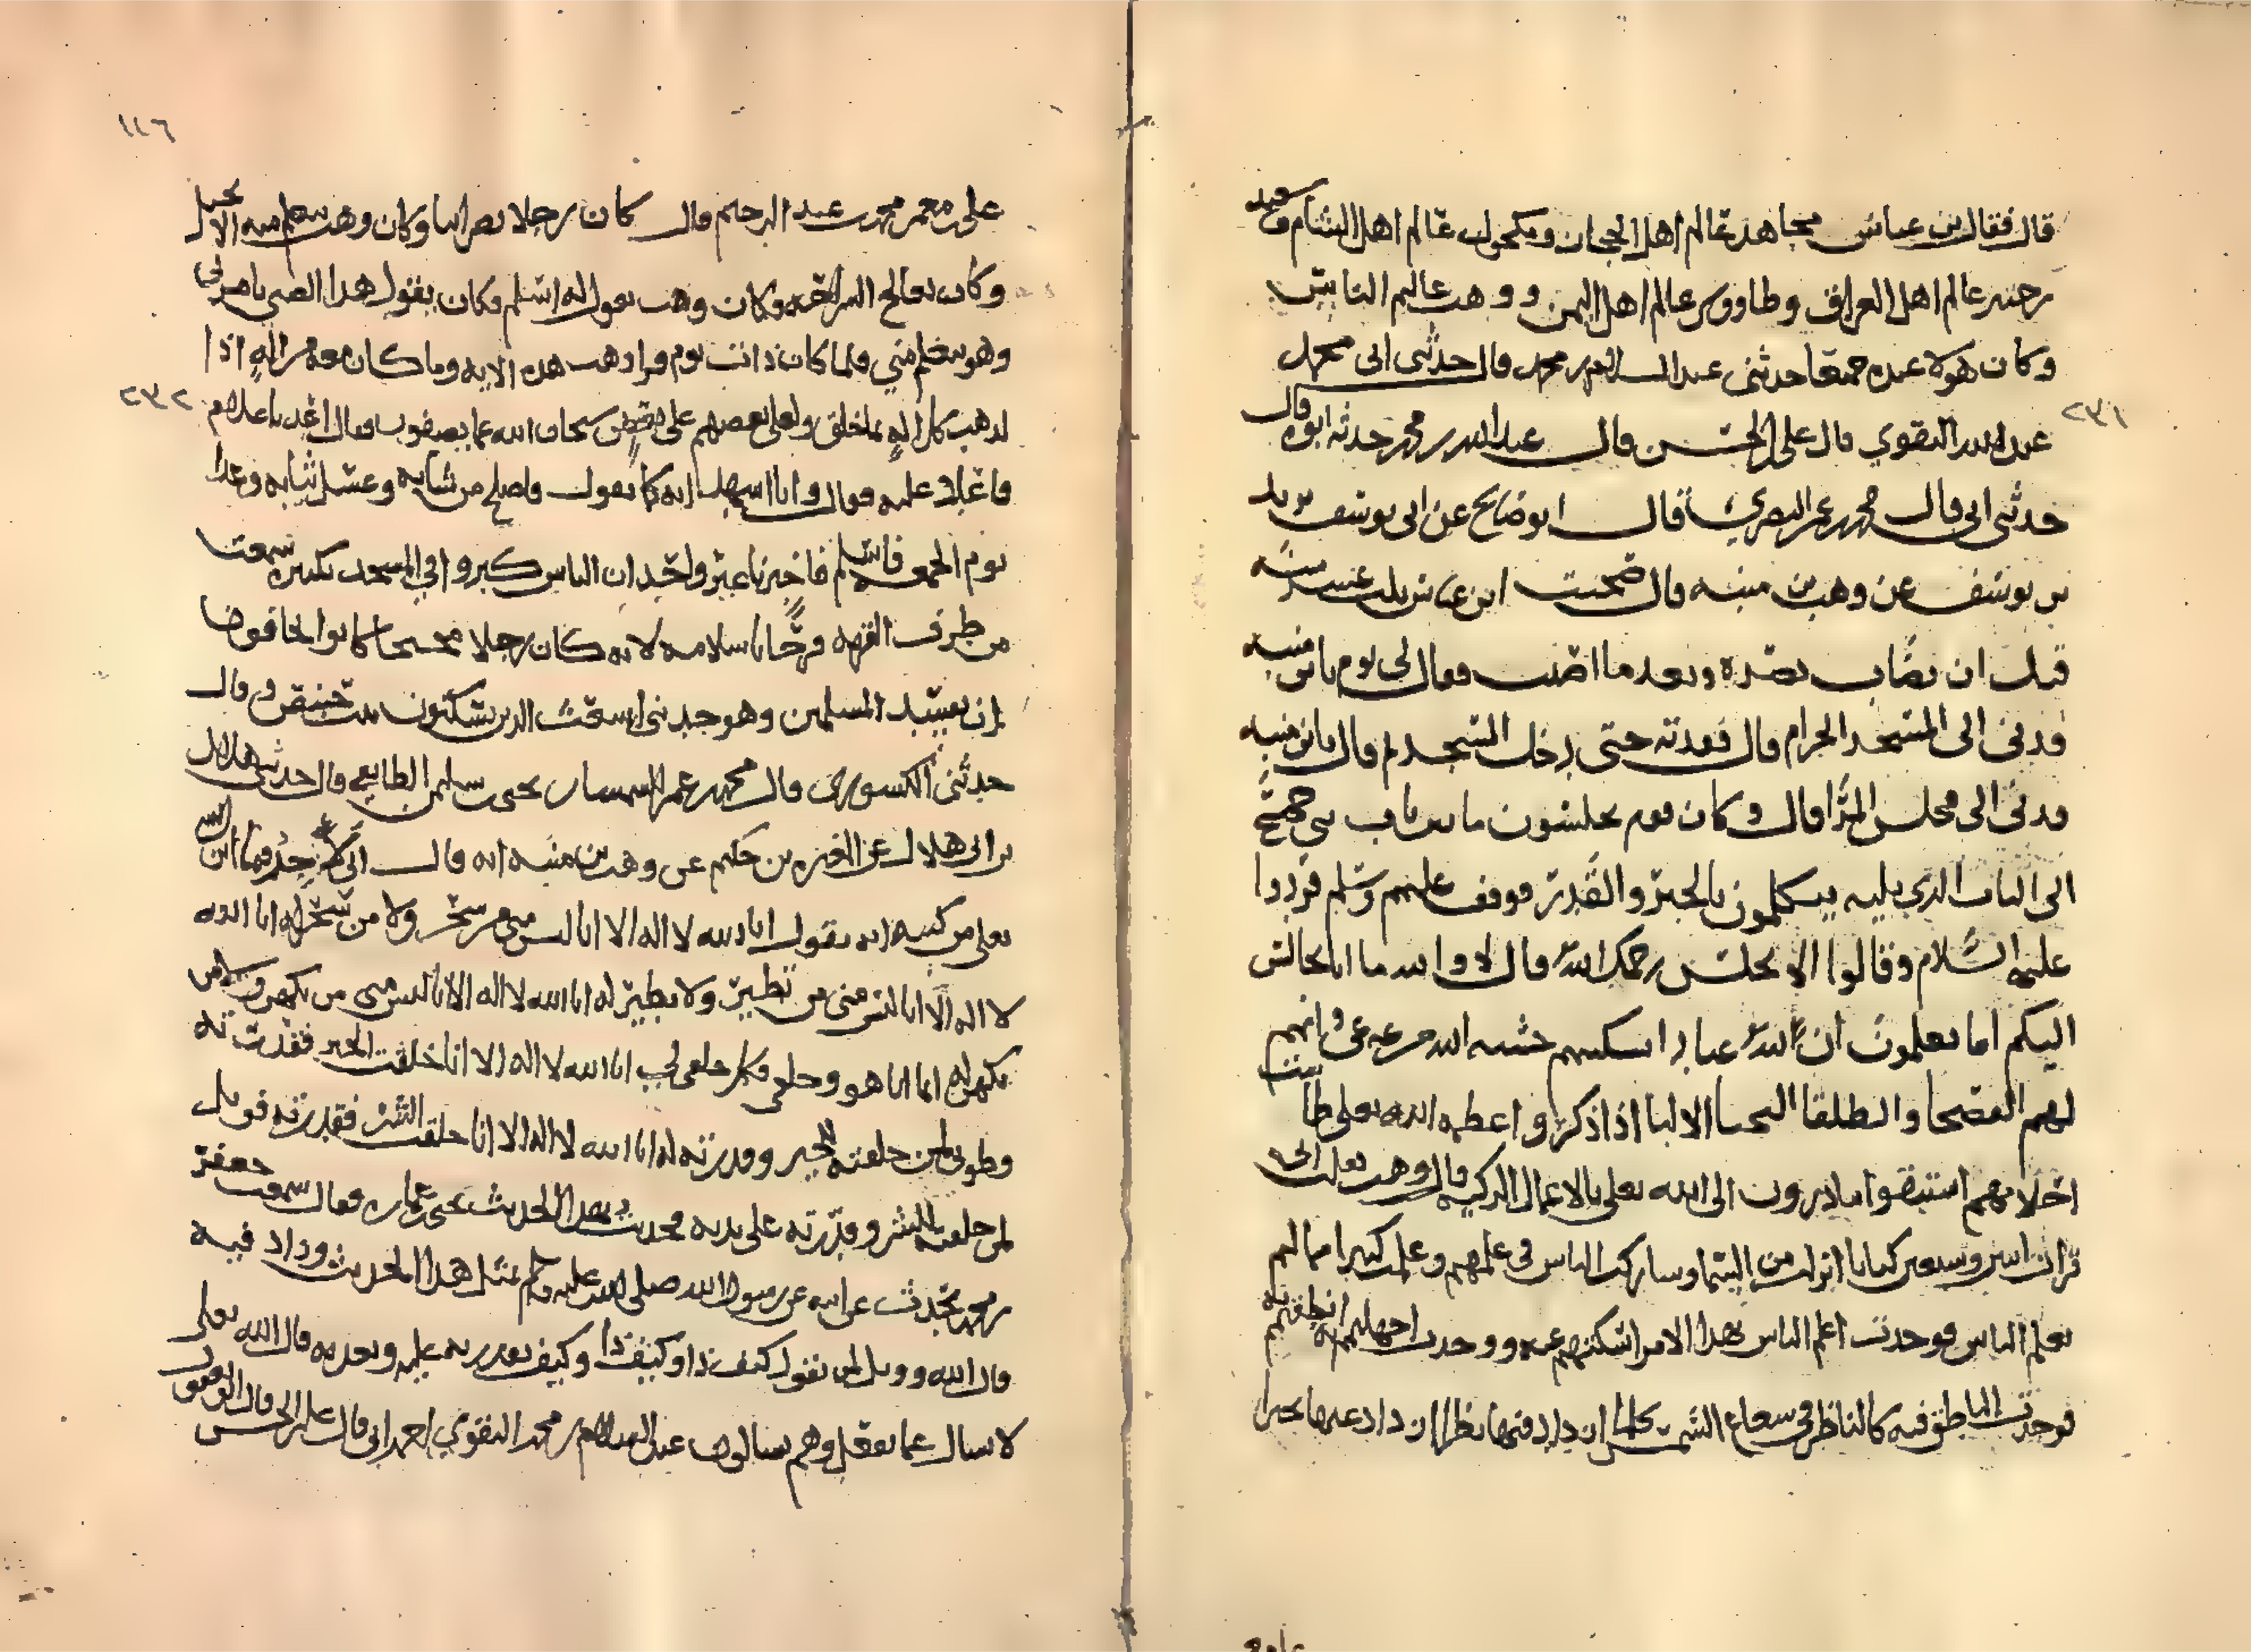 قال فقال بن عباس مجاهد عالم اهل الحجاز ومكحول عالم اهل الشام وسعيد
بن جبير عالم اهل العراق وطاووس عالم اهل اليمن ووهب عالم الناس
وكان هولا عنده جميعا حدثني عبد السلام بن محمد قال حدثني ابي محمد
٢٣١
عبد الله النقوي قال علي بن الحسن قال عبد الله بن محمد حدثه ابوه قال
حدثني ابي قال محمد بن عمر البصري قال ابو صالح عن ابي يوسف يزيد
بن يوسف عن وهب بن منبه قال صحبت ابن عباس ثلث عشرسنه
قبل ان يصاب بصره وبعد ما اصيب فقال لي يوم يابن منبه
قدني الى المسجد الحرام قال فقدته حتى دخل المسجد ثم قال يابن منبه
قدني الى مجلس المرا قال وكان قوم يجلسون ما بين باب بني جمح
الى الباب الذي يليه يتكلمون بالجبر والقدر فوقف عليهم وسلم فردوا
عليه السلام وقالوا الا تجلس رحمك الله قال لا والله ما انا بجالس
اليكم اما تعلمون ان لله عبادا اسكتهم خشية الله من غير عي وانهم
لهم الفصحا والطلقا النجبا الالبا اذا ذكروا عظمة الله تعلى طاشت
احلامهم استبقوا يبادرون الى الله تعلى بالاعمال الزكيه قال وهب
قرات اثنين وسبعين كتابا انزلت من السما وشاركت الناس في علمهم وعلمت كثيرا مما لم
يعلم الناس فوجدت اعلم الناس بهذا الامر اسكتهم عنه ووجدت اجهلهم به انطقهم به
فوجدت الناظر فيه كالناظر في شعاع الشمس كلما ازداد فيها نظرا ازداد عنها تحيرا
١١٦
علي بن معمر بن محمد بن عبد الرحيم قال كان رجلا نصرانيا وكان وهب يتعلم منه الانجيل
وكان يعالج السرايج وكان وهب يقول له اسلم فكان يقول هذا الصبي يامرني
وهو يتعلم مني فلما كان ذات يوم قرا وهب هذه الايه وما كان معه من اله اذا
٢٣٢
لذهب كل اله بما خلق ولعلى بعضهم على بعض سبحان الله عما يصفون فقال اعد يا غلام
فاعاد عليه فقال وانا اشهد انه كما تقول فاصلح من شانه وغسل ثيابه وغدا
يوم الجمعه فاسلم فاخبرنا غير واحد ان الناس كبروا في المسجد تكبيره سمعت
من طرف القريه فرحا باسلامه لانه كان رجلا كانوا يخافون
ان يفسد المسلمين وهو جد بني اسقف الذين يسكنون بيت حنبص وقال
حدثني الكشوري قال محمد بن عمر السمسار بن يحيى بن سليم الطايفي قال حدثني هلال
بن ابي هلال عن المغيره بن حكيم عن وهب بن منبه انه قال اني لاجد فيما انزل الله
تعلى من كتبه انه يقول انا الله لا اله الا انا ليس مني من سحر ولا من سحر له انا الله
لا اله الا انا ليس مني من تطير ولا تطير له انا الله لا اله الا انا ليس مني من تكهن ولا من
تكهن له انما انا هو وخلقي وكل خلقي لي انا الله لا اله الا انا خلقت الخير فقدرته
وطوبى لمن خلقته للخير وقدرته له انا الله لا اله الا انا خلقت الشر فقدرته فويل
لمن خلقته للشر وقدرته على يديه فحدثت بهذا الحديث يحيى بن عماره فقال سمعت جعفر
بن محمد يحدث عن ابيه عن رسول الله صلى الله عليه وسلم مثل هذا الحديث وزاد فيه
قال الله وويل لمن يقول كيف ذا وكيف ذا وكيف يقدر به عليه ويعذبه قال الله تعلى
لا يسال عما يفعل وهم يسالون عبد السلام بن محمد النقوي اخبرني ابي قال علي بن الحسن قال